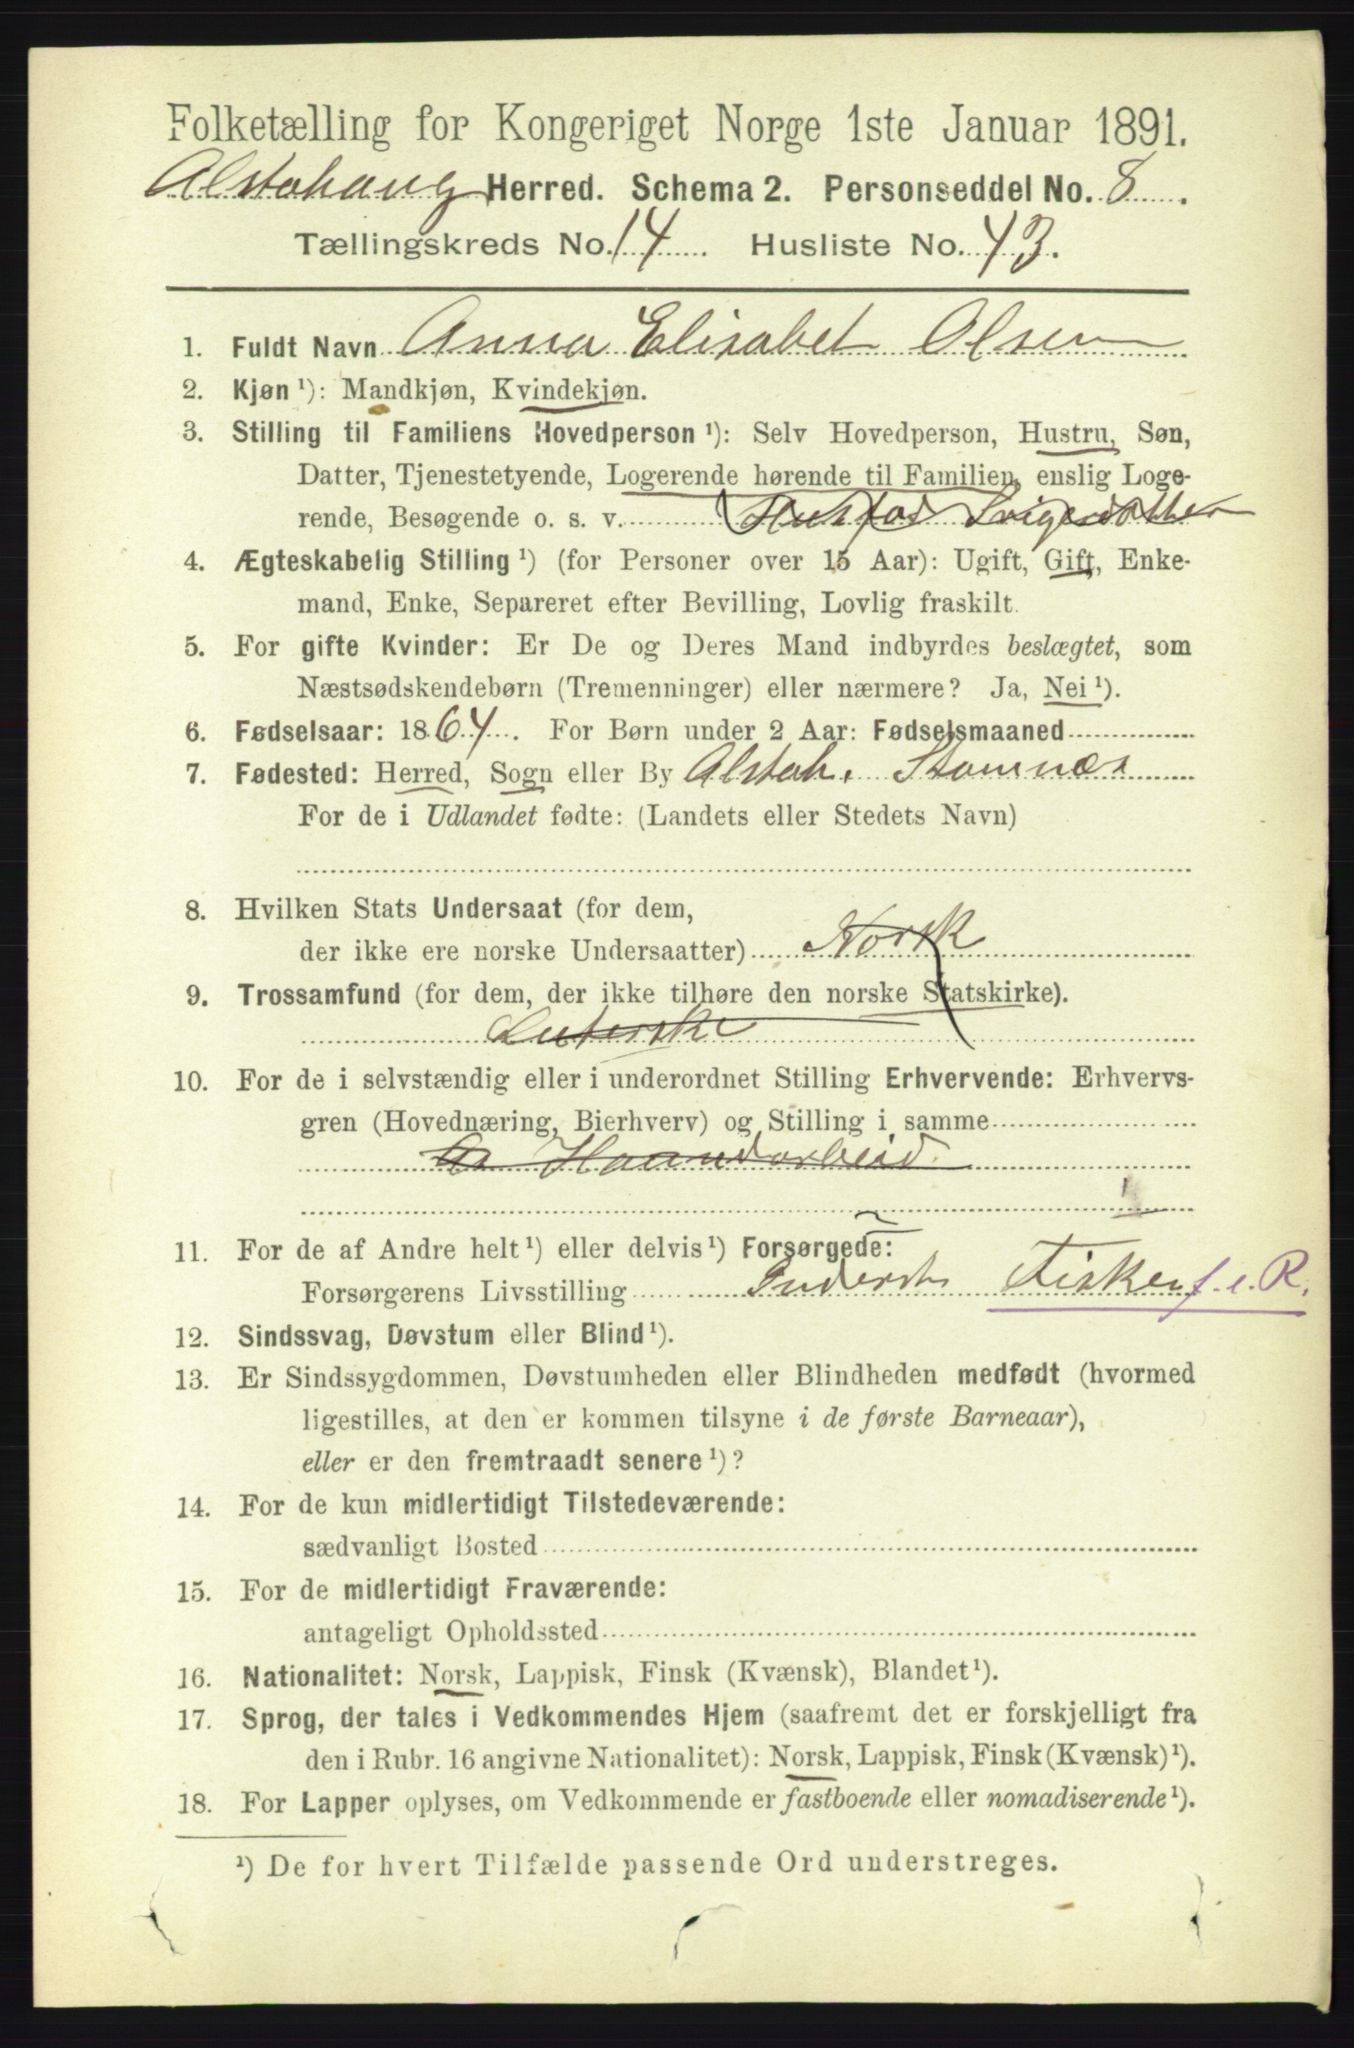 Folketælling for Kongeriget Norge 1ste Januar 1891.
Alstahaug Herred. Schema 2. Personseddel No. 8.
Tællingskreds No. 14 Husliste No. 43.
1. Fuldt Navn Anna Elisabet Olsen
2. Kjøn ¹): Mandkjøn, Kvindekjøn.
3. Stilling til Familiens Hovedperson ¹): Selv Hovedperson, Hustru, Søn,
Datter, Tjenestetyende, Logerende hørende til Familien, enslig Loge-
rende, Besøgende o. s. v. Svigerdatter
4. Ægteskabelig Stilling ¹) (for Personer over 15 Aar): Ugift, Gift, Enke-
mand, Enke, Separeret efter Bevilling, Lovlig fraskilt.
5. For gifte Kvinder: Er De og Deres Mand indbyrdes beslægtet, som
Næstsødskendebørn (Tremenninger) eller nærmere? Ja, Nei ¹).
6. Fødselsaar: 1864. For Børn under 2 Aar: Fødselsmaaned
7. Fødested: Herred, Sogn eller By Alstah. Stamnæs
For de i Udlandet fødte: (Landets eller Stedets Navn)
8. Hvilken Stats Undersaat (for dem,
der ikke ere norske Undersaatter) Norsk
9. Trossamfund (for dem, der ikke tilhøre den norske Statskirke).
Luterske
10. For de i selvstændig eller i underordnet Stilling Erhvervende: Erhvervs-
gren (Hovednæring, Bierhverv) og Stilling i samme
Haandarbeid.
11. For de af Andre helt ¹) eller delvis ¹) Forsørgede:
Forsørgerens Livsstilling Inderst Fisker f. e. R.
12. Sindssvag, Døvstum eller Blind ¹).
13. Er Sindssygdommen, Døvstumheden eller Blindheden medfødt (hvormed
ligestilles, at den er kommen tilsyne i de første Barneaar),
eller er den fremtraadt senere ¹)?
14. For de kun midlertidigt Tilstedeværende:
sædvanligt Bosted
15. For de midlertidigt Fraværende:
antageligt Opholdssted
16. Nationalitet: Norsk, Lappisk, Finsk (Kvænsk), Blandet ¹).
17. Sprog, der tales i Vedkommendes Hjem (saafremt det er forskjelligt fra
den i Rubr. 16 angivne Nationalitet): Norsk, Lappisk, Finsk (Kvænsk) ¹).
18. For Lapper oplyses, om Vedkommende er fastboende eller nomadiserende ¹).
¹) De for hvert Tilfælde passende Ord understreges.